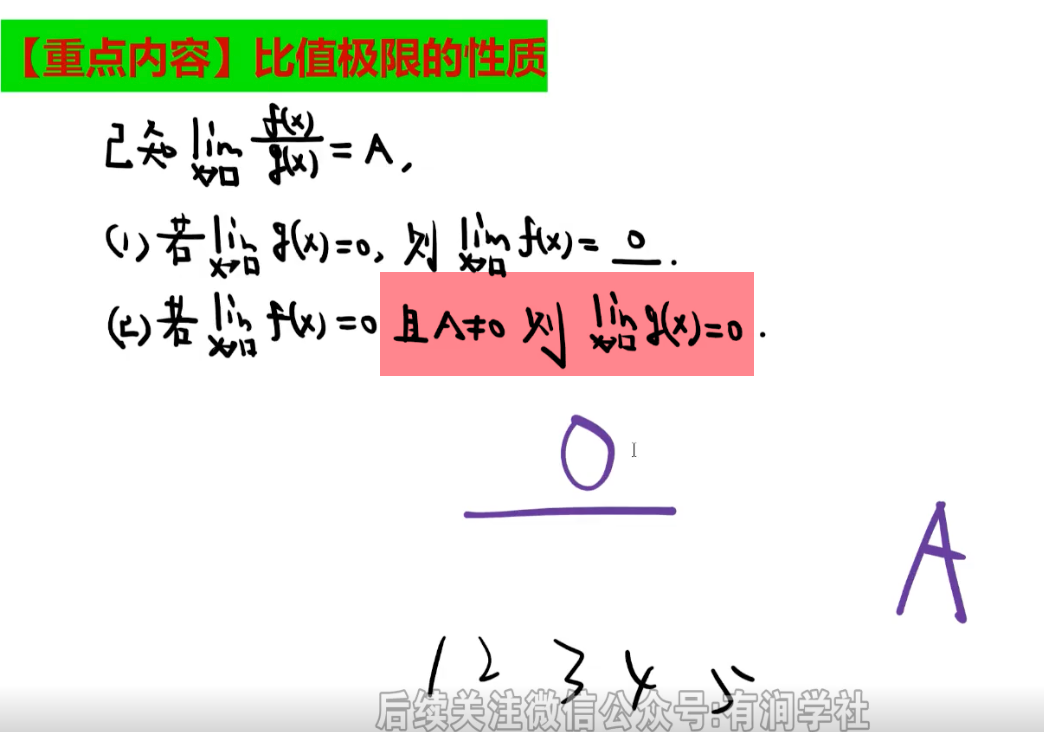 【重点内容】比值极限的性质
已知 lim x→□ f(x)/g(x) = A,
(1) 若 lim x→□ g(x)=0, 则 lim x→□ f(x)= 0 .
(2) 若 lim x→□ f(x)=0 且 A≠0 则 lim x→□ g(x)=0 .
0
A
1 2 3 4 5
后续关注微信公众号:有润学社